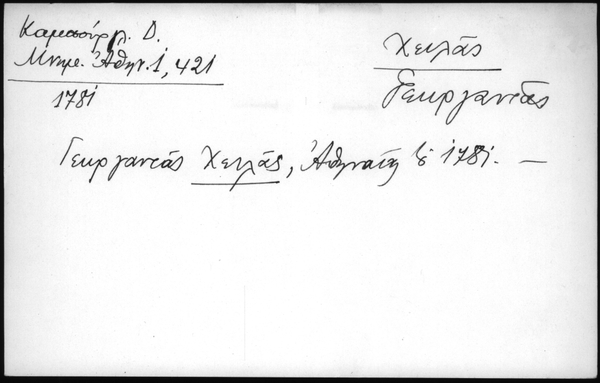 Καμπούρογλ. Δ.
Μνημ. Ἀθην. 1, 421
1781
Χειλᾶς
Γεωργαντᾶς
Γεωργαντᾶς Χειλᾶς, Ἀθηναῖος 1781. —